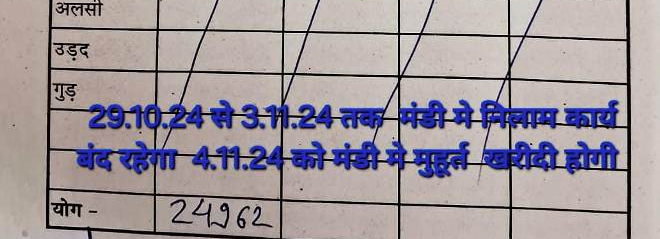 अलसी
उड़द
गुड़
29.10.24 से 3.11.24 तक मंडी मे निलाम कार्य
बंद रहेगा 4.11.24 को मंडी मे मुहूर्त खरीदी होगी
योग - 24962